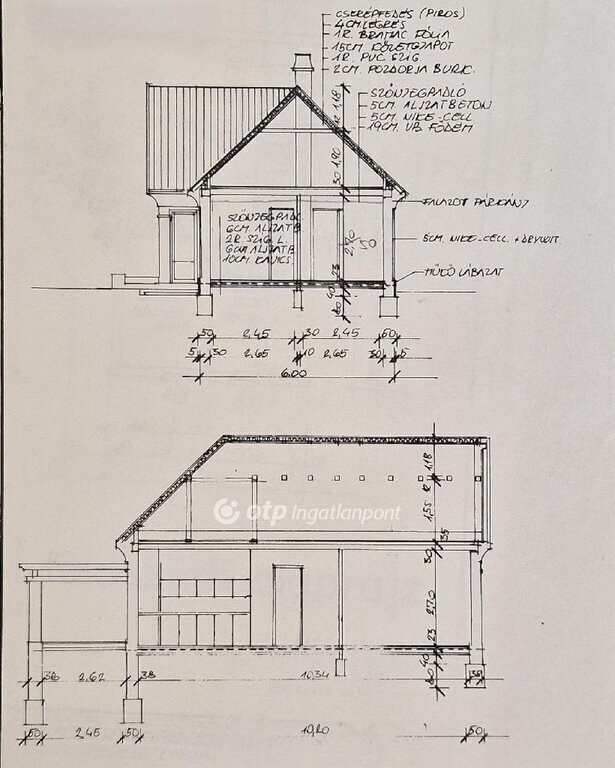 CSERÉPFEDÉS (PIROS)
4CM LÉGRÉS
1R. BRAMAC FÓLIA
15CM KŐZETGYAPOT
1R. PVC SZIG
2CM. POZDORJA BURK.
SZŐNYEGPADLÓ
5CM. ALJZATBETON
5CM. NIKE-CELL
19CM. VB. FÖDÉM
1,18
12
1,90
30
FALAZOT PÁRKÁNY
SZŐNYEGPADL
6CM. ALJZATB
2R. SZIG. L.
6CM ALJZATB.
10CM. KAVICS.
2,70
5CM. NIKE-CELL + DRYVOTT.
MŰKŐ LÁBAZAT
23
40
80
50 2,45 30 2,45 50
5 30 2,65 10 2,65 30 5
6,00
1,18
12
1,55
35
30
otp Ingatlanpont
2,70
23
40
80
38 2,62 38 10,34 38
50 2,45 50 10,20 50